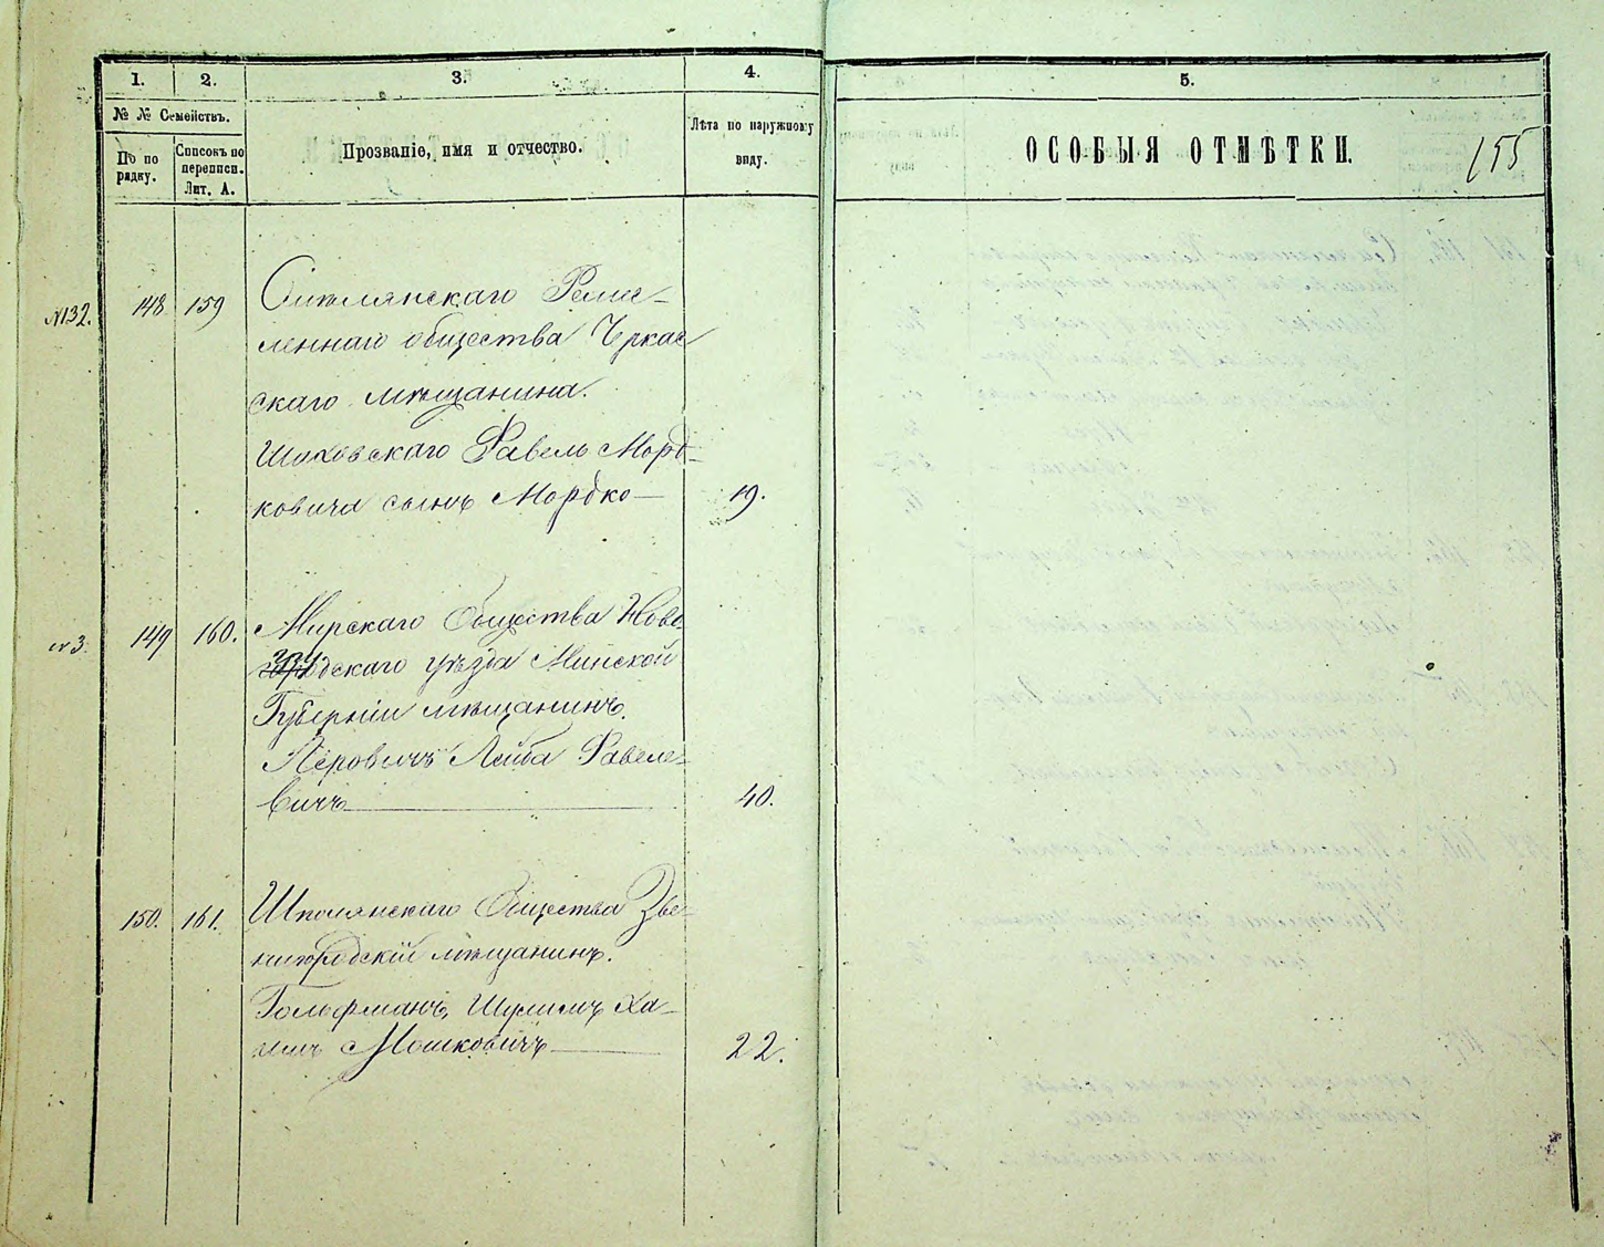 1.
2.
3.
4.
№ № Семействъ.
По по
рядку.
Списокъ по
переписи.
Лит. А.
Прозваніе, имя и отчество.
Лѣта по наружному
виду.
5.
ОСОБЫЯ ОТМѢТКИ.
155
№132.
148
159
Смѣлянскаго Ремес-
леннаго общества Черкас
скаго мѣщанина.
Шаховскаго Фавель Морд-
ковича сынъ Мордко
19.
№3.
149
160.
Мирскаго Общества Ново
грудскаго уѣзда Минской
Губерніи мѣщанинъ.
Перовичъ Лейба Фавеле-
вичъ
40.
150.
161.
Шполянскаго Общества Зве-
нигородскій мѣщанинъ.
Гольфманъ, Шулимъ Ха-
имъ Мошковичъ
22.